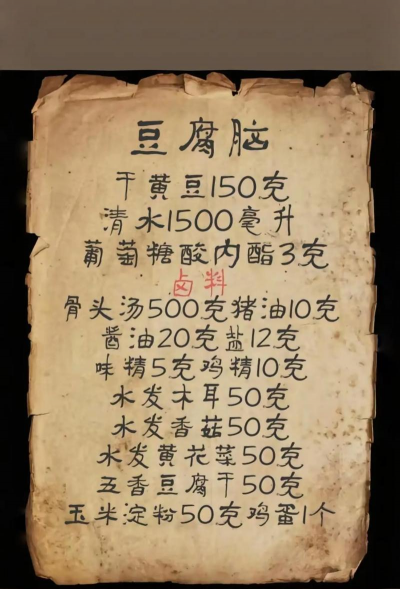 豆腐脑
干黄豆150克
清水1500毫升
葡萄糖酸内酯3克
卤料
骨头汤500克猪油10克
酱油20克盐12克
味精5克鸡精10克
水发木耳50克
水发香菇50克
水发黄花菜50克
五香豆腐干50克
玉米淀粉50克鸡蛋1个